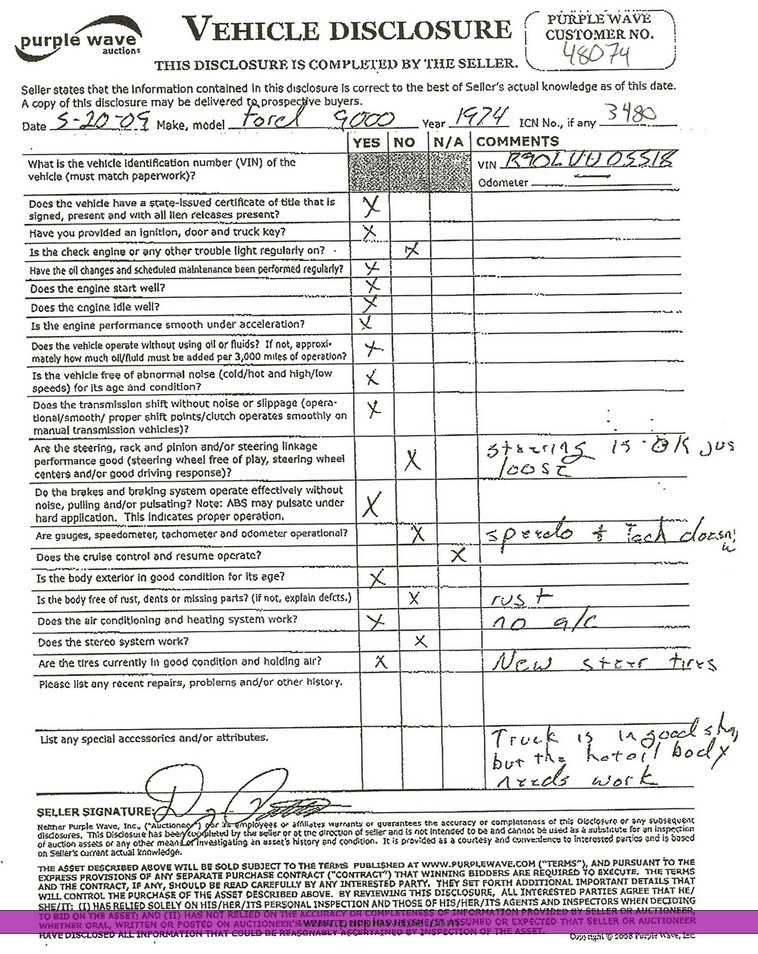 purple wave
auctions
VEHICLE DISCLOSURE
THIS DISCLOSURE IS COMPLETED BY THE SELLER.
PURPLE WAVE
CUSTOMER NO.
48074
Seller states that the information contained in this disclosure is correct to the best of Seller's actual knowledge as of this date.
A copy of this disclosure may be delivered to prospective buyers.
Date 5-20-09 Make, model Ford 9000 Year 1974 ICN No., if any 3480
YES NO N/A COMMENTS
What is the vehicle identification number (VIN) of the
vehicle (must match paperwork)?
VIN R90LVU05518
Odometer
Does the vehicle have a state-issued certificate of title that is
signed, present and with all lien releases present? X
Have you provided an ignition, door and truck key? X
Is the check engine or any other trouble light regularly on? X
Have the oil changes and scheduled maintenance been performed regularly? X
Does the engine start well? X
Does the engine idle well? X
Is the engine performance smooth under acceleration? X
Does the vehicle operate without using oil or fluids? If not, approxi-
mately how much oil/fluid must be added per 3,000 miles of operation? X
Is the vehicle free of abnormal noise (cold/hot and high/low
speeds) for its age and condition? X
Does the transmission shift without noise or slippage (opera-
tional/smooth/ proper shift points/clutch operates smoothly on
manual transmission vehicles)? X
Are the steering, rack and pinion and/or steering linkage
performance good (steering wheel free of play, steering wheel
centers and/or good driving response)? X
steering is OK jus
loose
Do the brakes and braking system operate effectively without
noise, pulling and/or pulsating? Note: ABS may pulsate under
hard application. This indicates proper operation. X
Are gauges, speedometer, tachometer and odometer operational? X speedo & Tach doesn,
w
Does the cruise control and resume operate? X
Is the body exterior in good condition for its age? X
Is the body free of rust, dents or missing parts? (if not, explain defcts.) X rust
Does the air conditioning and heating system work? X no a/c
Does the stereo system work? X
Are the tires currently in good condition and holding air? X New steer tires
Please list any recent repairs, problems and/or other history.
List any special accessories and/or attributes.
Truck is in good sha
but the hotoil body
needs work
SELLER SIGNATURE:
Neither Purple Wave, Inc., ("Auctioneer") nor its employees or affiliates warrants or guarantees the accuracy or completeness of this Disclosure or any subsequent
disclosures. This Disclosure has been completed by the seller or at the direction of seller and is not intended to be and cannot be used as a substitute for an inspection
of auction assets or any other means of investigating an asset's history and condition. It is provided as a courtesy and convenience to interested parties and is based
on Seller's current actual knowledge.
THE ASSET DESCRIBED ABOVE WILL BE SOLD SUBJECT TO THE TERMS PUBLISHED AT WWW.PURPLEWAVE.COM ("TERMS"), AND PURSUANT TO THE
EXPRESS PROVISIONS OF ANY SEPARATE PURCHASE CONTRACT ("CONTRACT") THAT WINNING BIDDERS ARE REQUIRED TO EXECUTE. THE TERMS
AND THE CONTRACT, IF ANY, SHOULD BE READ CAREFULLY BY ANY INTERESTED PARTY. THEY SET FORTH ADDITIONAL IMPORTANT DETAILS THAT
WILL CONTROL THE PURCHASE OF THE ASSET DESCRIBED ABOVE. BY REVIEWING THIS DISCLOSURE, ALL INTERESTED PARTIES AGREE THAT HE/
SHE/IT: (I) HAS RELIED SOLELY ON HIS/HER/ITS PERSONAL INSPECTION AND THOSE OF HIS/HER/ITS AGENTS AND INSPECTORS WHEN DECIDING
TO BID ON THE ASSET; AND (II) HAS NOT RELIED ON THE ACCURACY OR COMPLETENESS OF INFORMATION PROVIDED BY SELLER OR AUCTIONEER
WHETHER ORAL, WRITTEN OR POSTED ON AUCTIONEER'S ASSUMED OR EXPECTED THAT SELLER OR AUCTIONEER
HAVE DISCLOSED ALL INFORMATION THAT COULD BE REASONABLY ASCERTAINED BY INSPECTION OF THE ASSET.
Copyright © 2008 Purple Wave, Inc.